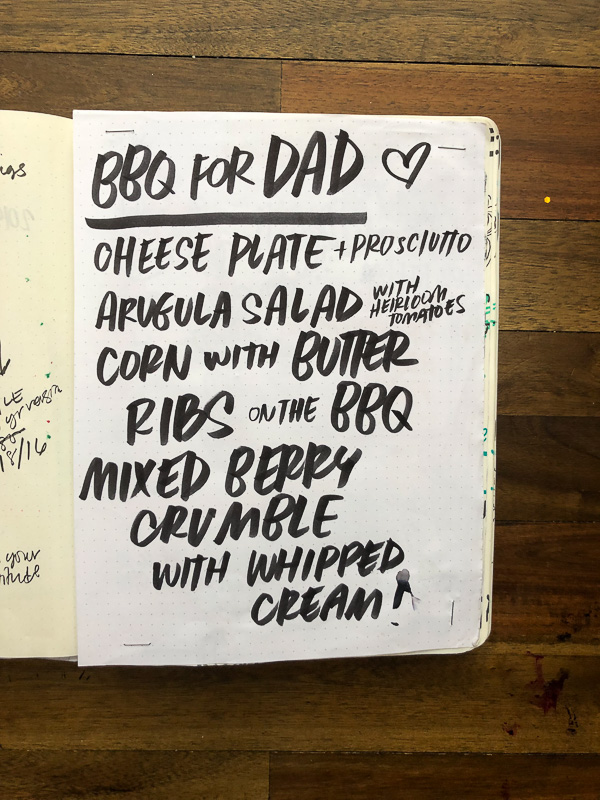 BBQ FOR DAD ♡
CHEESE PLATE + PROSCIUTTO
ARUGULA SALAD WITH HEIRLOOM TOMATOES
CORN WITH BUTTER
RIBS ON THE BBQ
MIXED BERRY
CRUMBLE
WITH WHIPPED
CREAM!
8/16
your